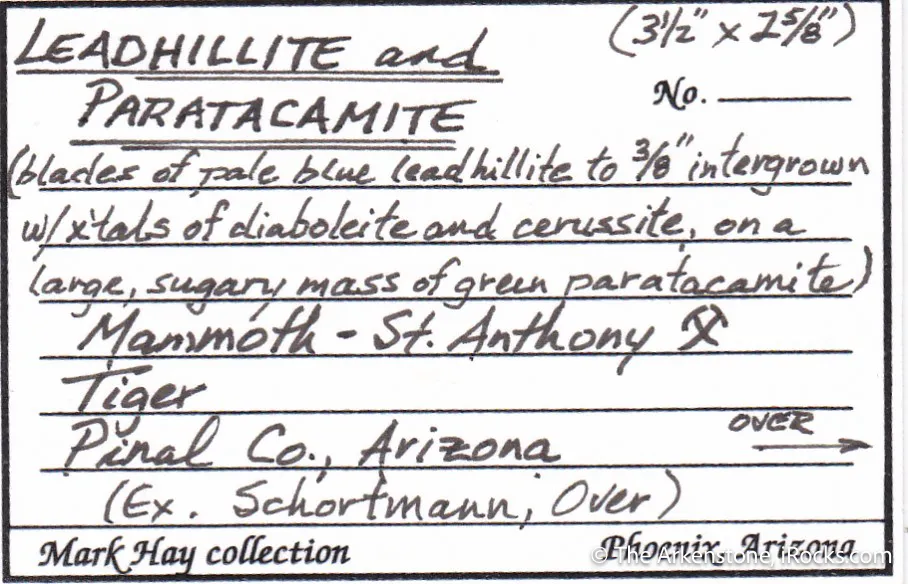 LEADHILLITE and (3½" x 1⅝")
PARATACAMITE No.
(blades of pale blue leadhillite to ⅜" intergrown
w/x'tals of diaboleite and cerussite, on a
large, sugary mass of green paratacamite)
Mammoth - St. Anthony ⚒
Tiger
Pinal Co., Arizona OVER →
(Ex. Schortmann; Over)
Mark Hay collection Phoenix, Arizona
© The Arkenstone, iRocks.com